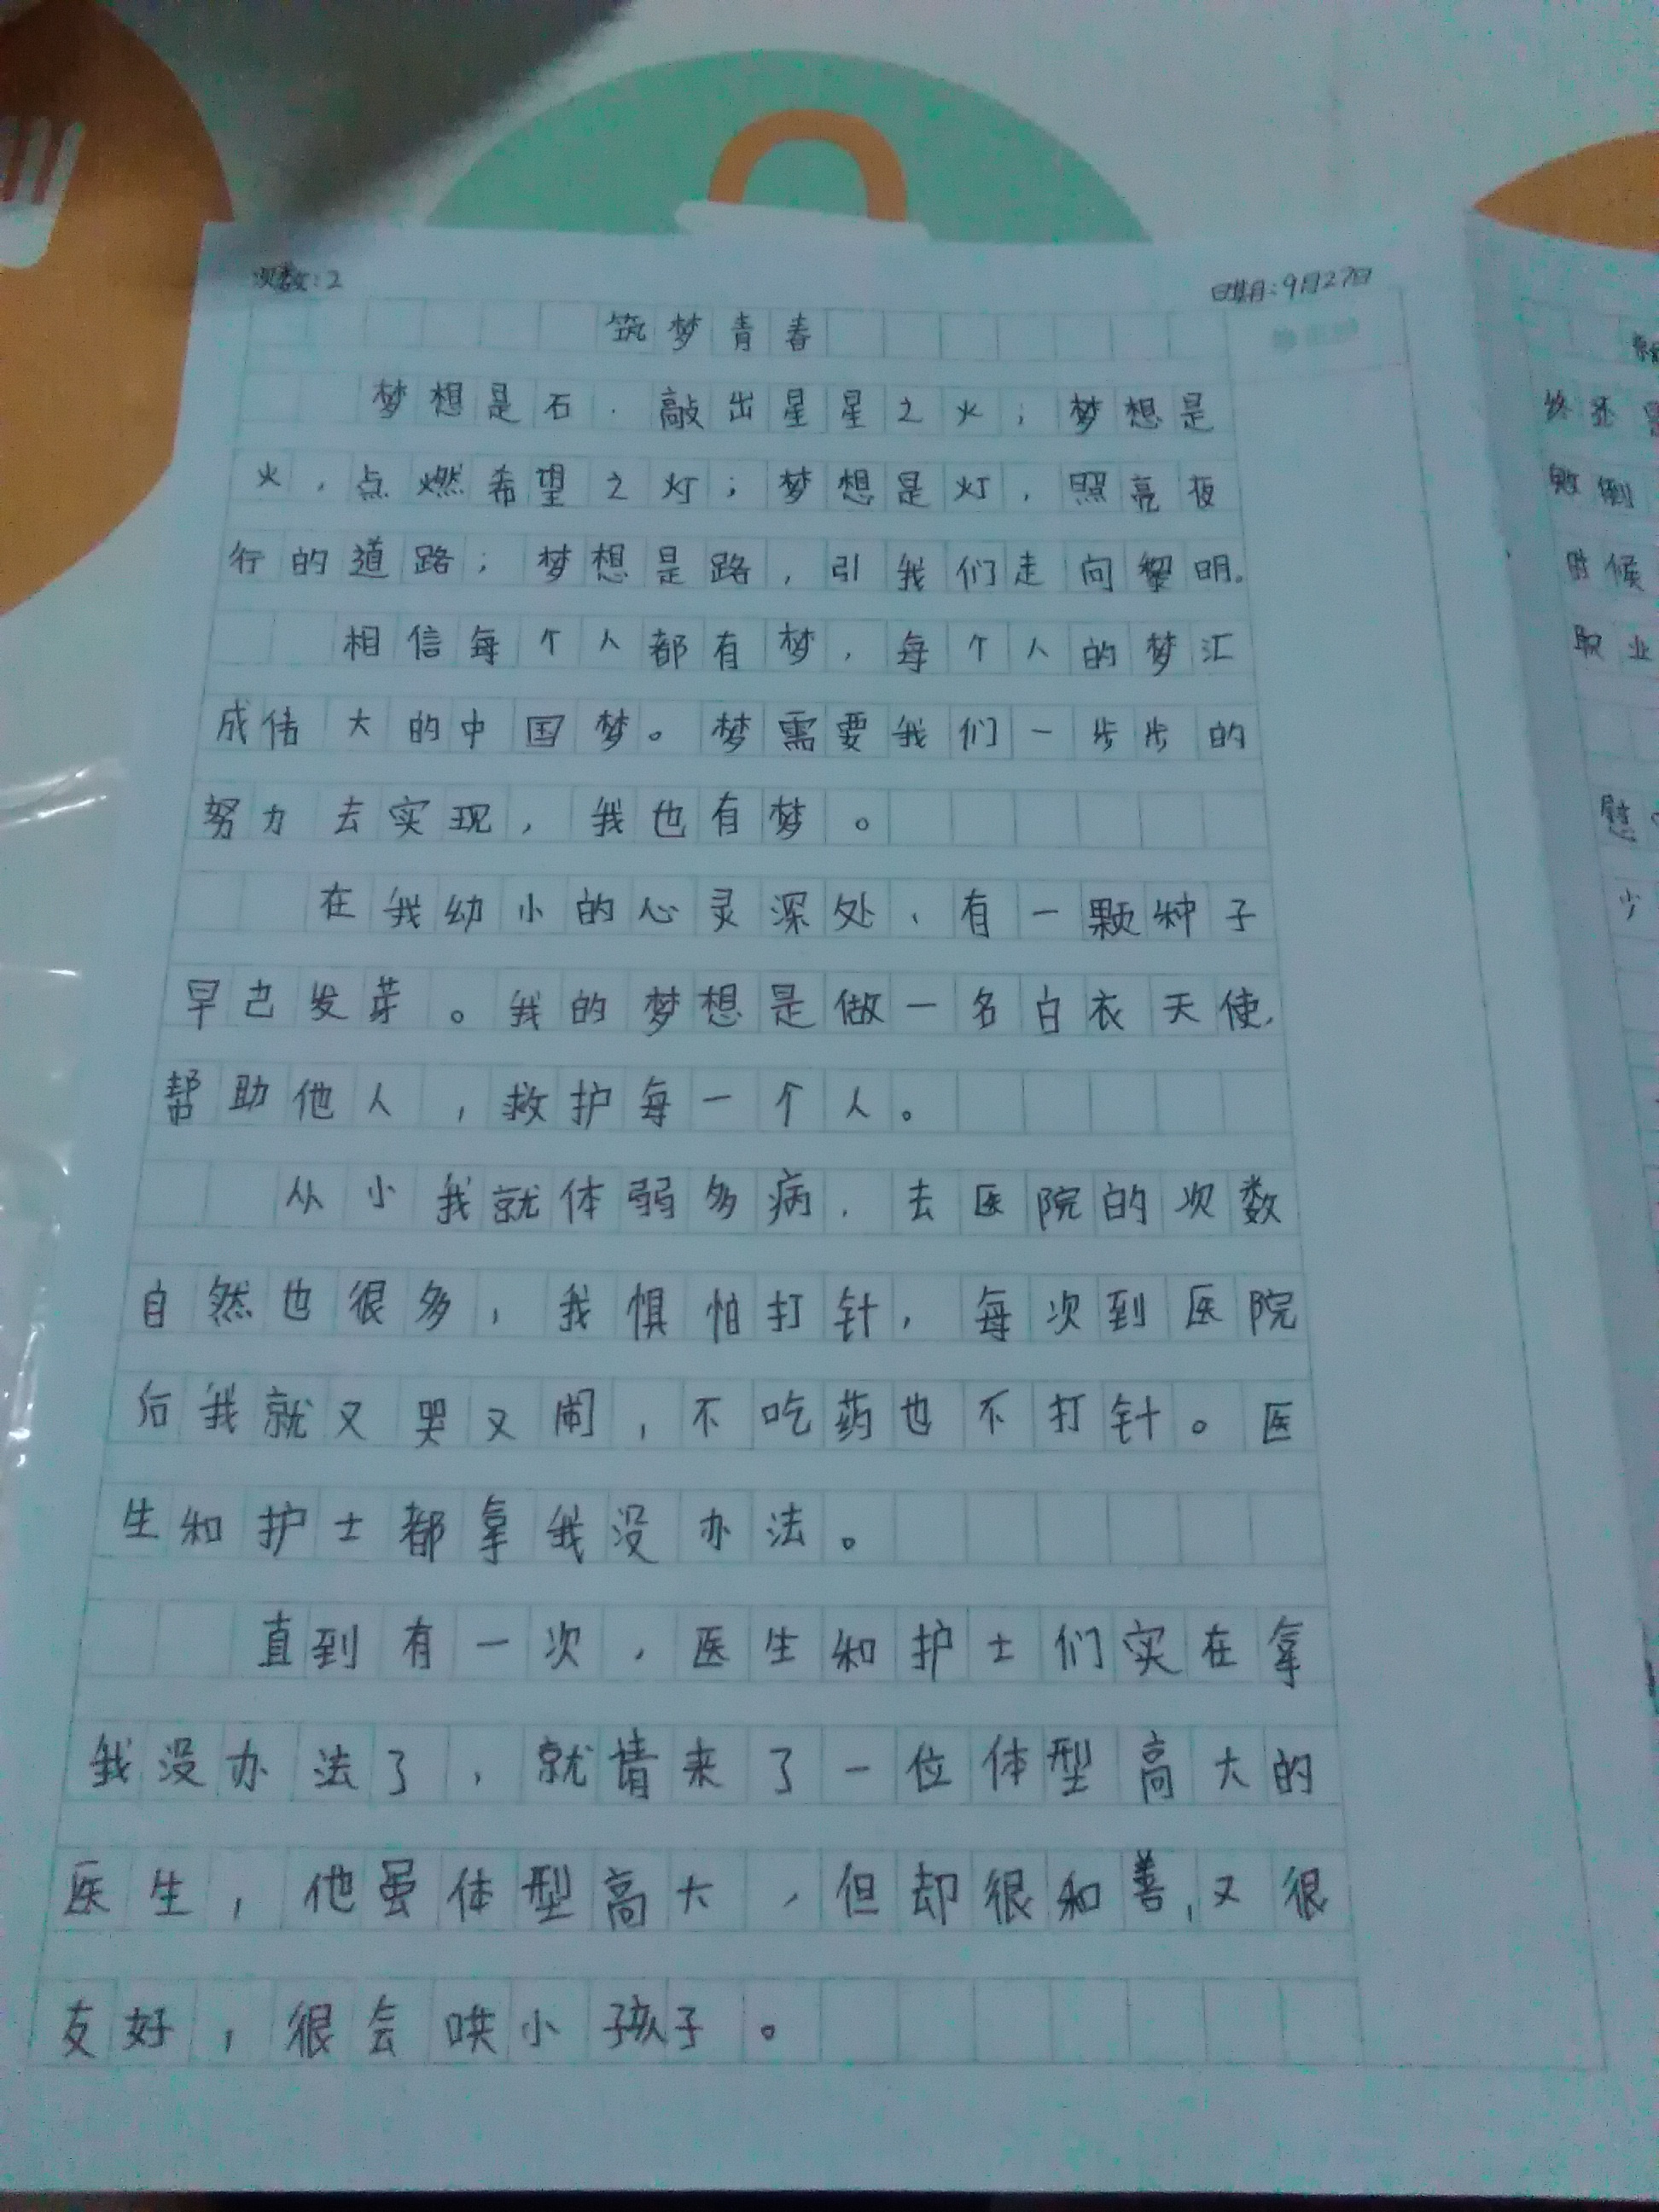 次数:2
日期:9月27日
筑梦青春
梦想是石,敲出星星之火;梦想是
火,点燃希望之灯;梦想是灯,照亮夜
行的道路;梦想是路,引我们走向黎明。
相信每个人都有梦,每个人的梦汇
成伟大的中国梦。梦需要我们一步步的
努力去实现,我也有梦。
在我幼小的心灵深处,有一颗种子
早已发芽。我的梦想是做一名白衣天使,
帮助他人,救护每一个人。
从小我就体弱多病,去医院的次数
自然也很多,我惧怕打针,每次到医院
后我就又哭又闹,不吃药也不打针。医
生和护士都拿我没办法。
直到有一次,医生和护士们实在拿
我没办法了,就请来了一位体型高大的
医生,他虽体型高大,但却很和善,又很
友好,很会哄小孩子。
败倒
时候
职业
慰
少